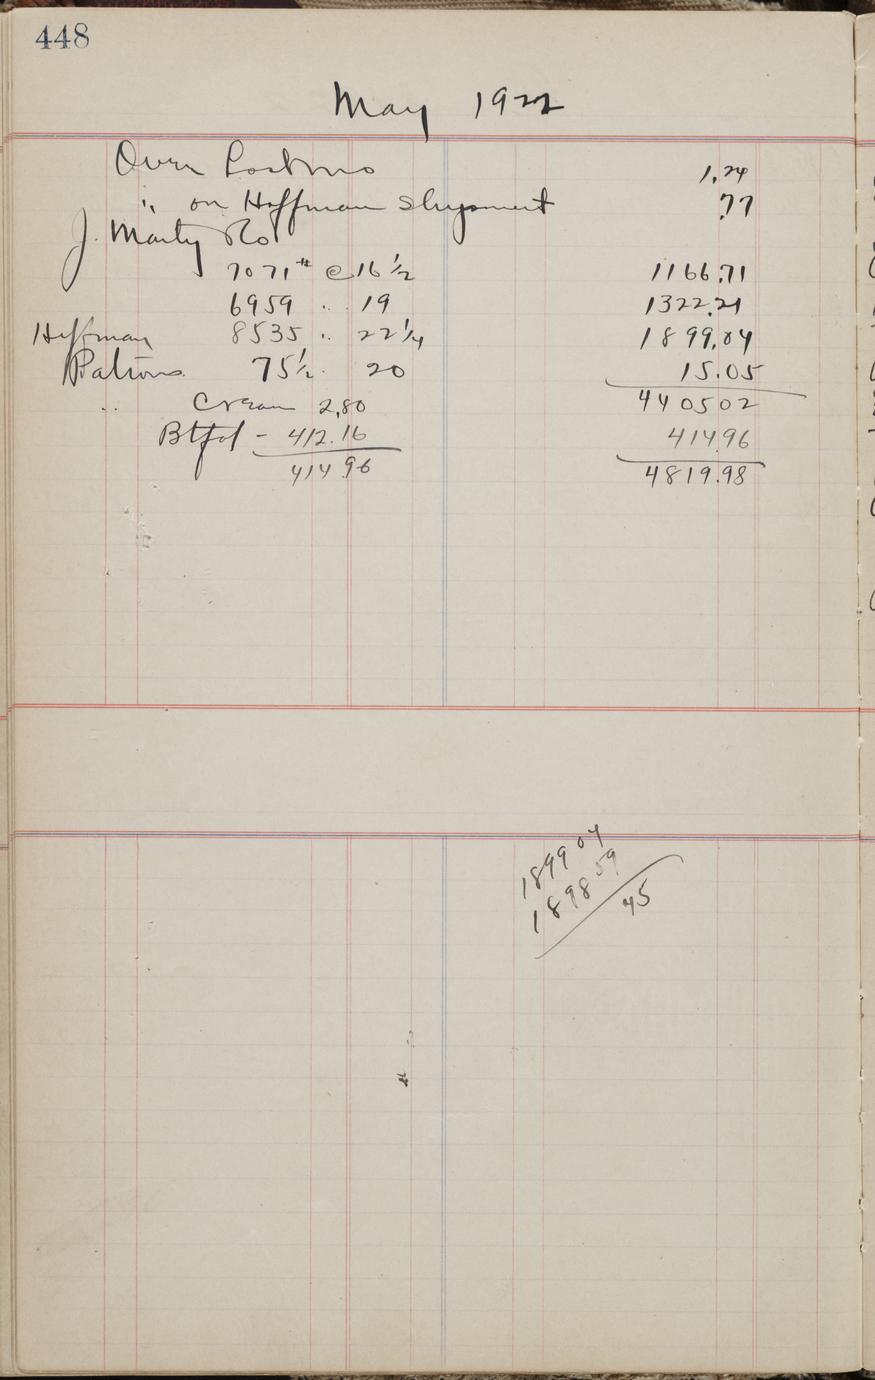 448
May 1922
Over 1.24
" on Hoffman Shipment .77
J. Marty Co
7071 # @ 16 1/2 1166.71
6959 " 19 1322.21
Hoffman 8535 " 22 1/4 1899.04
Patrons 75 1/2 " 20 15.05
" Cream 2.80 440502
Btfat - 412.16 41496
41496 4819.98
1899 04
1898 59
45